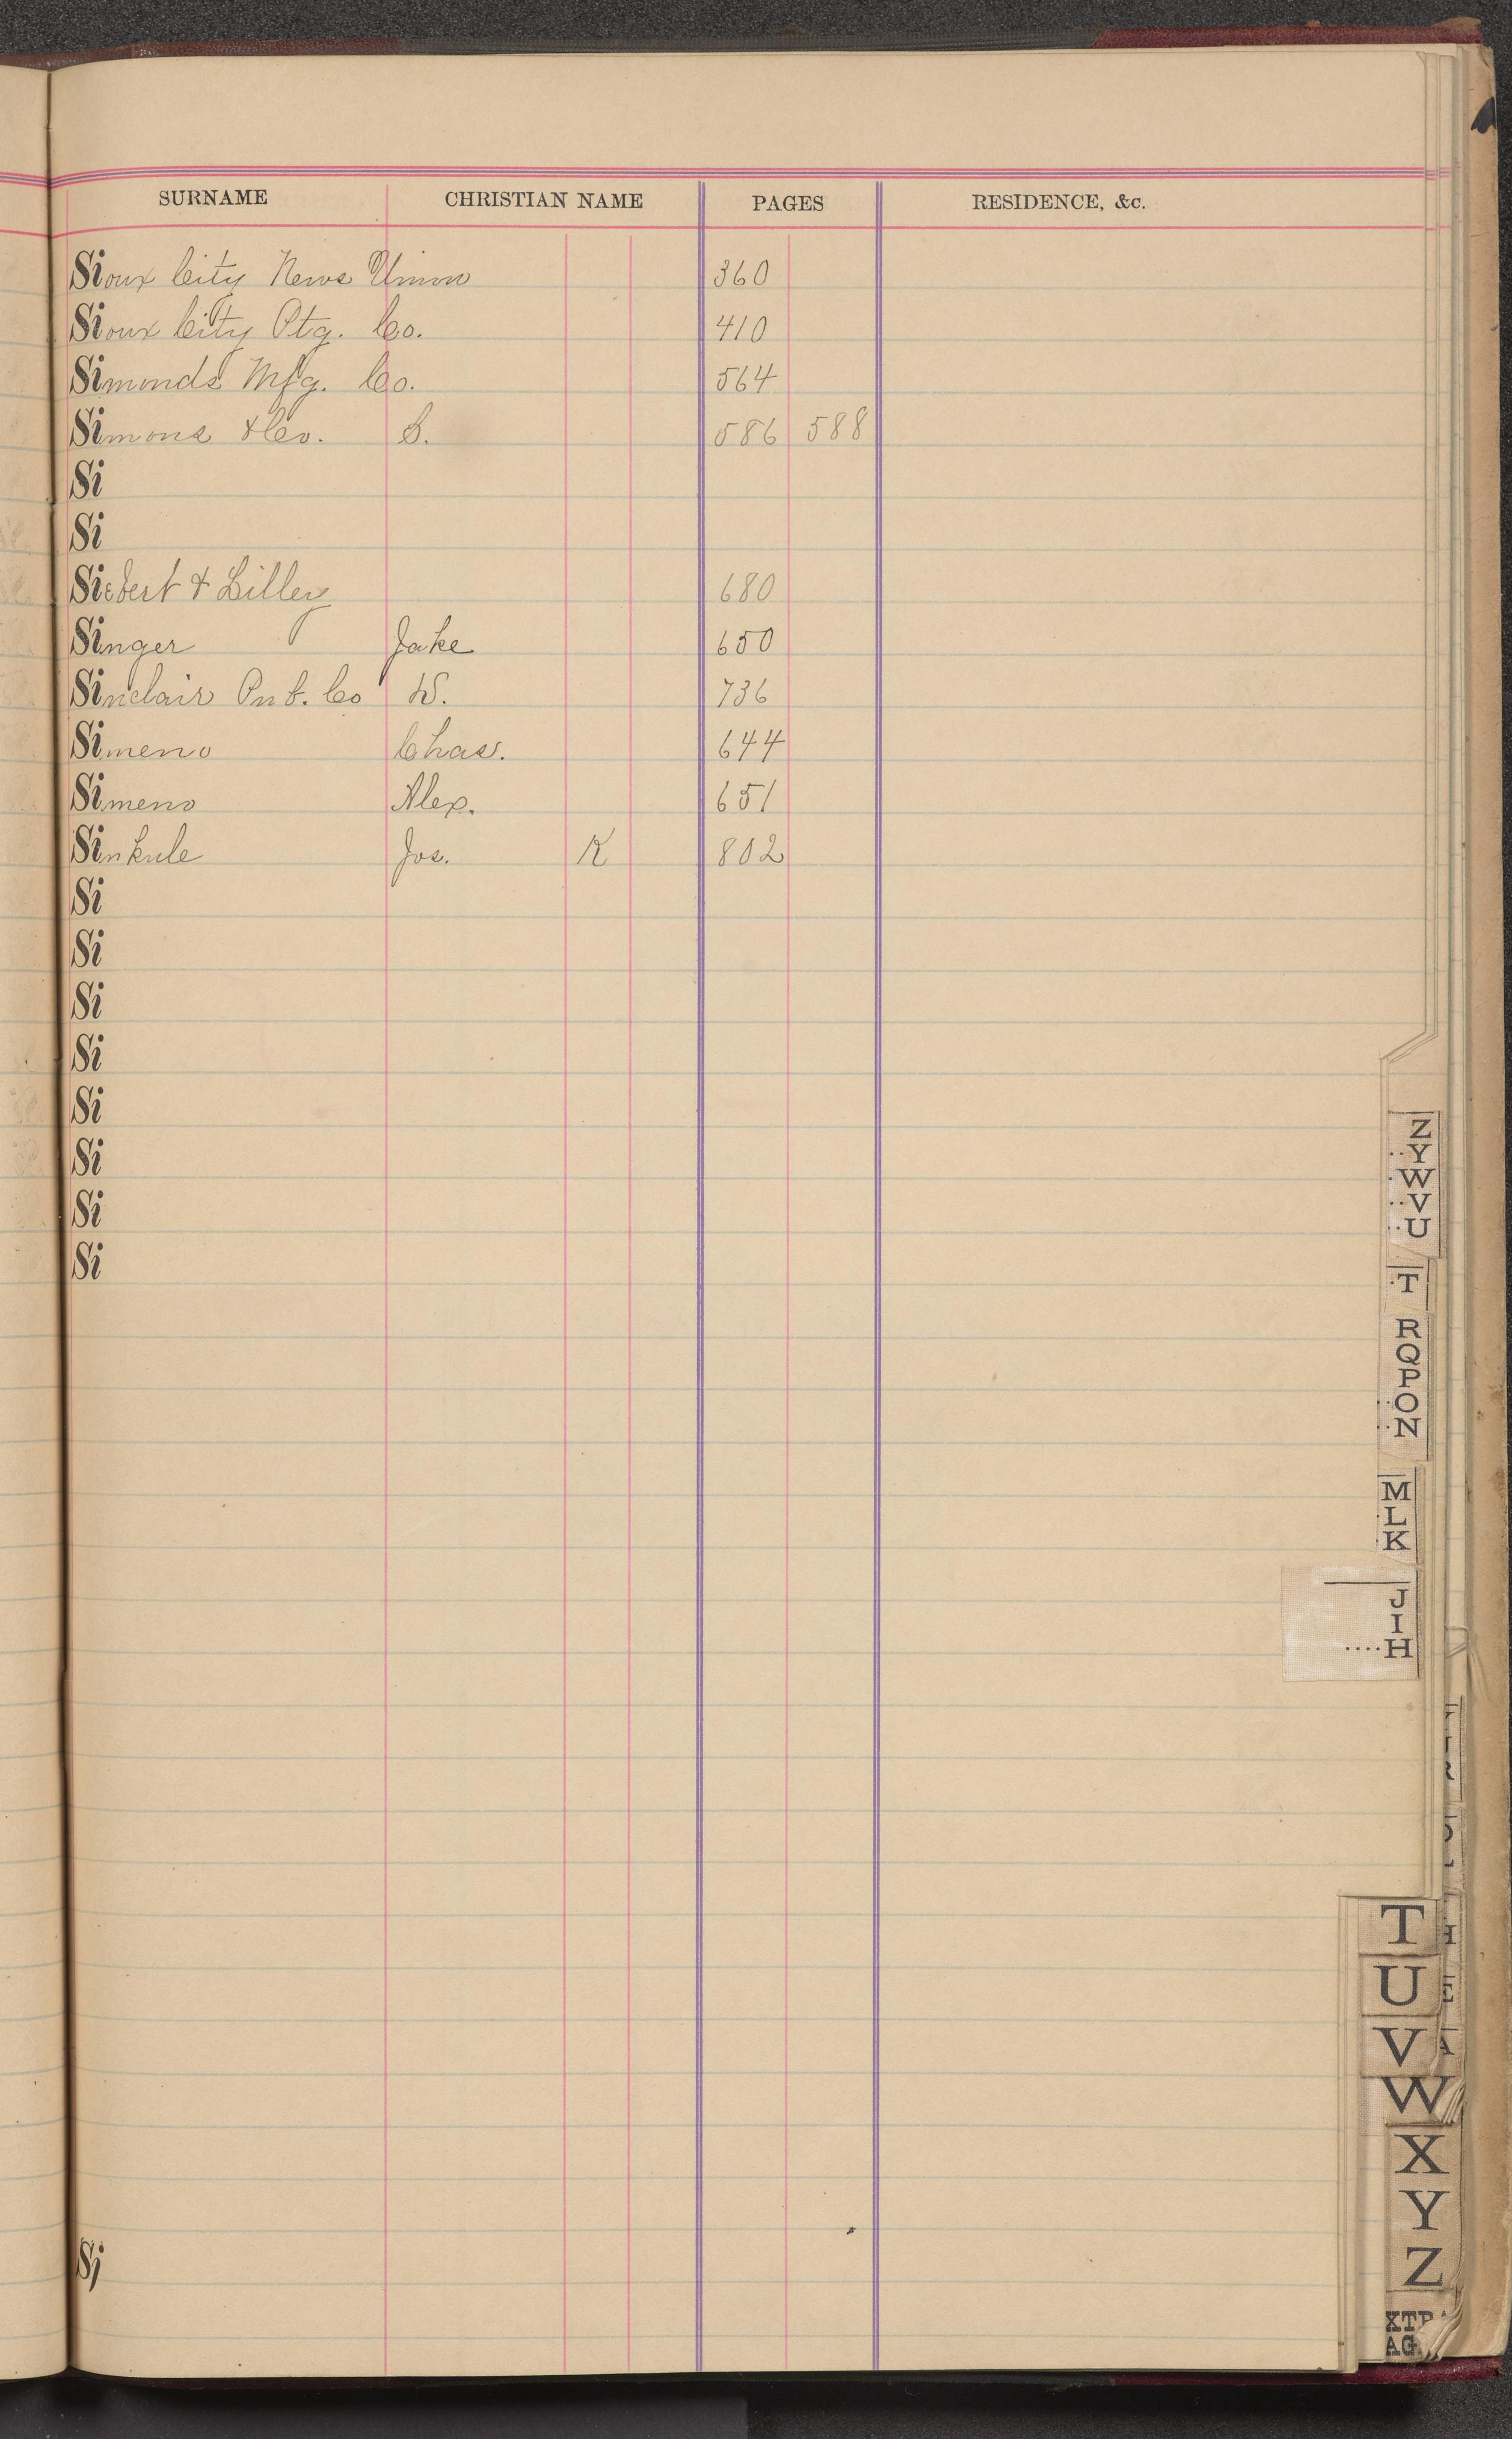 SURNAME CHRISTIAN NAME PAGES RESIDENCE, &c.
Sioux City News Union 360
Sioux City Ptg. Co. 410
Simonds Mfg. Co. 564
Simons & Co. S. 586 588
Si
Si
Siebert & Lilley 680
Singer Jake 650
Sinclair Pub. Co W. 736
Simeno Chas. 644
Simeno Alex. 651
Sinkule Jos. K 802
Si
Si
Si
Si
Si
Si
Si
Si
Sj
Z
..Y
.W
..V
..U
.T
R
Q
P
..O
..N
M
.L
.K
J
I
....H
T
U
V
W
X
Y
Z